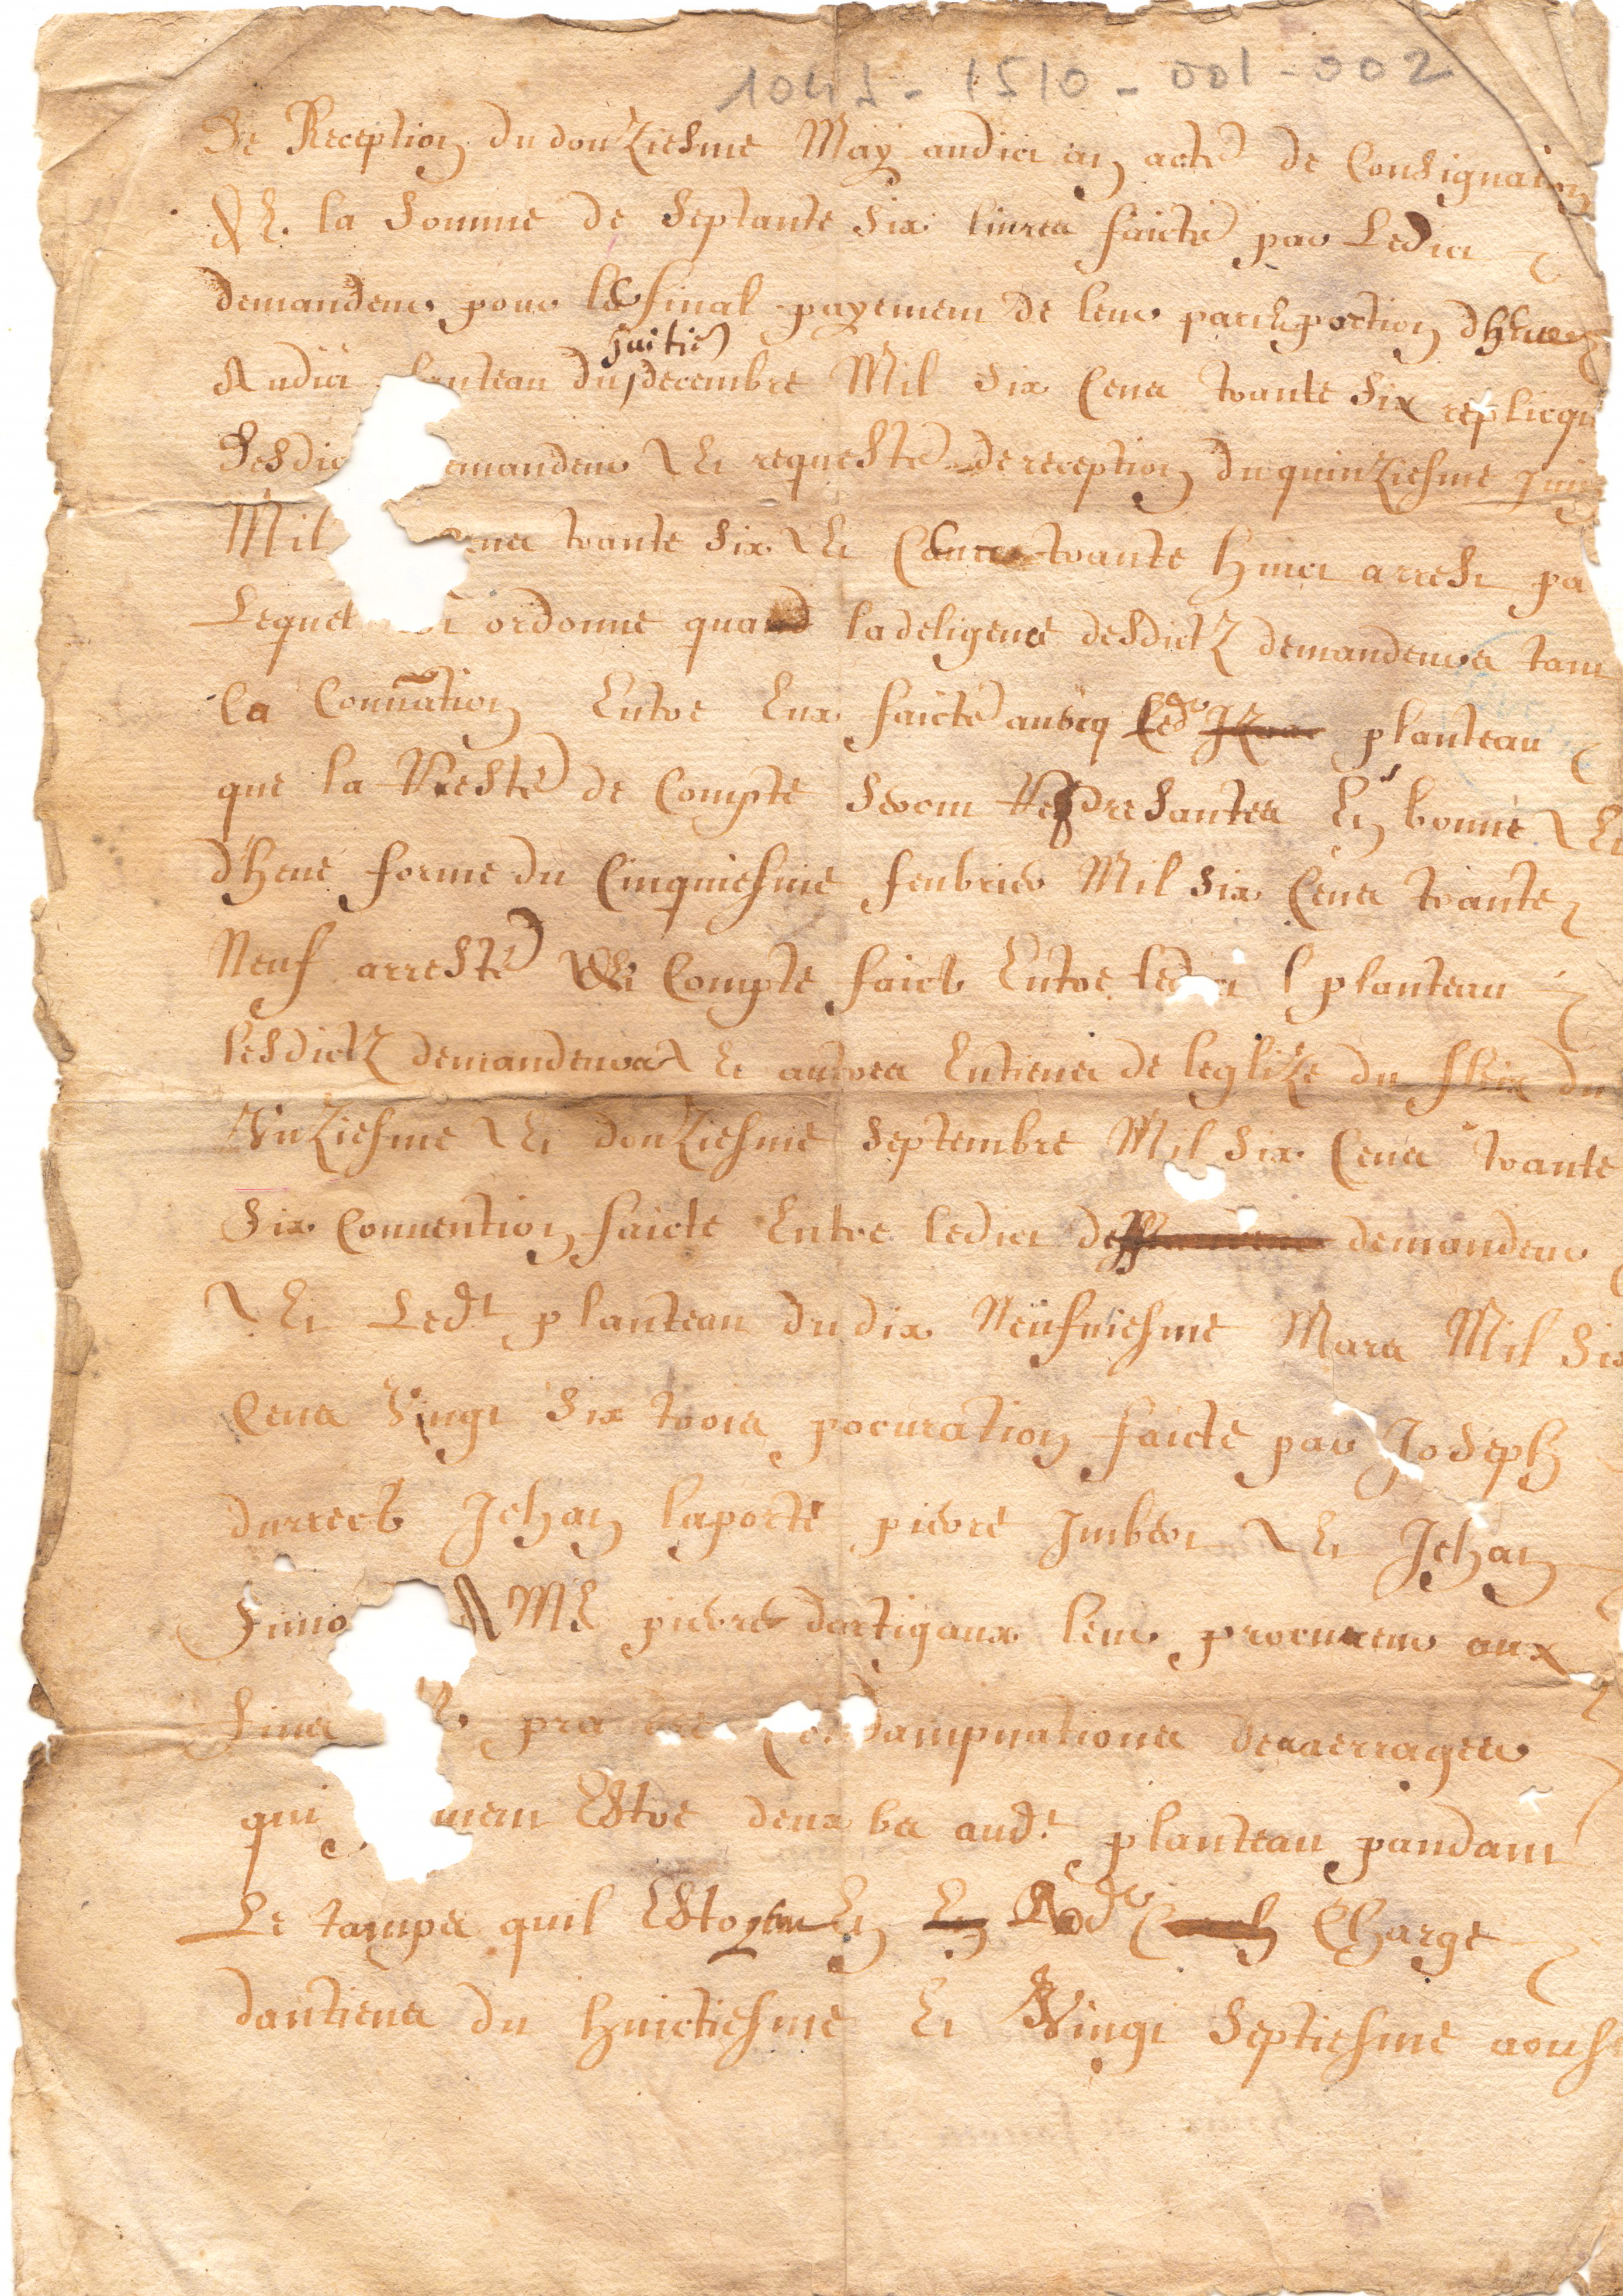 1041 - 1510 - 001 - 002
De Reception du douziesme May audict an acte de Consignation
de la somme de septante six livres faicte par Ledict
demandeur pour le final payement de leur part et portion dheue
Audict planteau du huitie decembre Mil six Cens trante six replicqu
Desdic emandeur Et requeste de reception du quinziesme Juing
Mil ens trante six Et trante huict arrest pa
Lequel ordonne qua la deligence desdictz demandeurs tant
la Conuãtion Entre Eux faicte auecq led planteau
que la Reste de Compte seront Represantes En bonne Et
dheue forme du Cinquiesme feubrier Mil six Cens trante
Neuf arreste de Compte faict Entre ledict planteau
lesdictz demandeurs Et autres Entiens de leglize du fleix du
Unziesme Et douziesme septembre Mil six Cens trante
six Conuention faicte Entre ledict demandeur
Et Ledt planteau du dix Neufuiesme Mars Mil six
Cens Vingt six trois procuration faicte par Joseph
durrect Jehan laporte pierre Imbert Et Jehan
Simo A Me pierre dartigaux leur procureur aux
fins pra dampnations des arrages
qui ment Estre deubs audt planteau pandant
Le tamps quil Estoyent En Charge
dantiens du huictiesme Et Vingt septiesme aoust